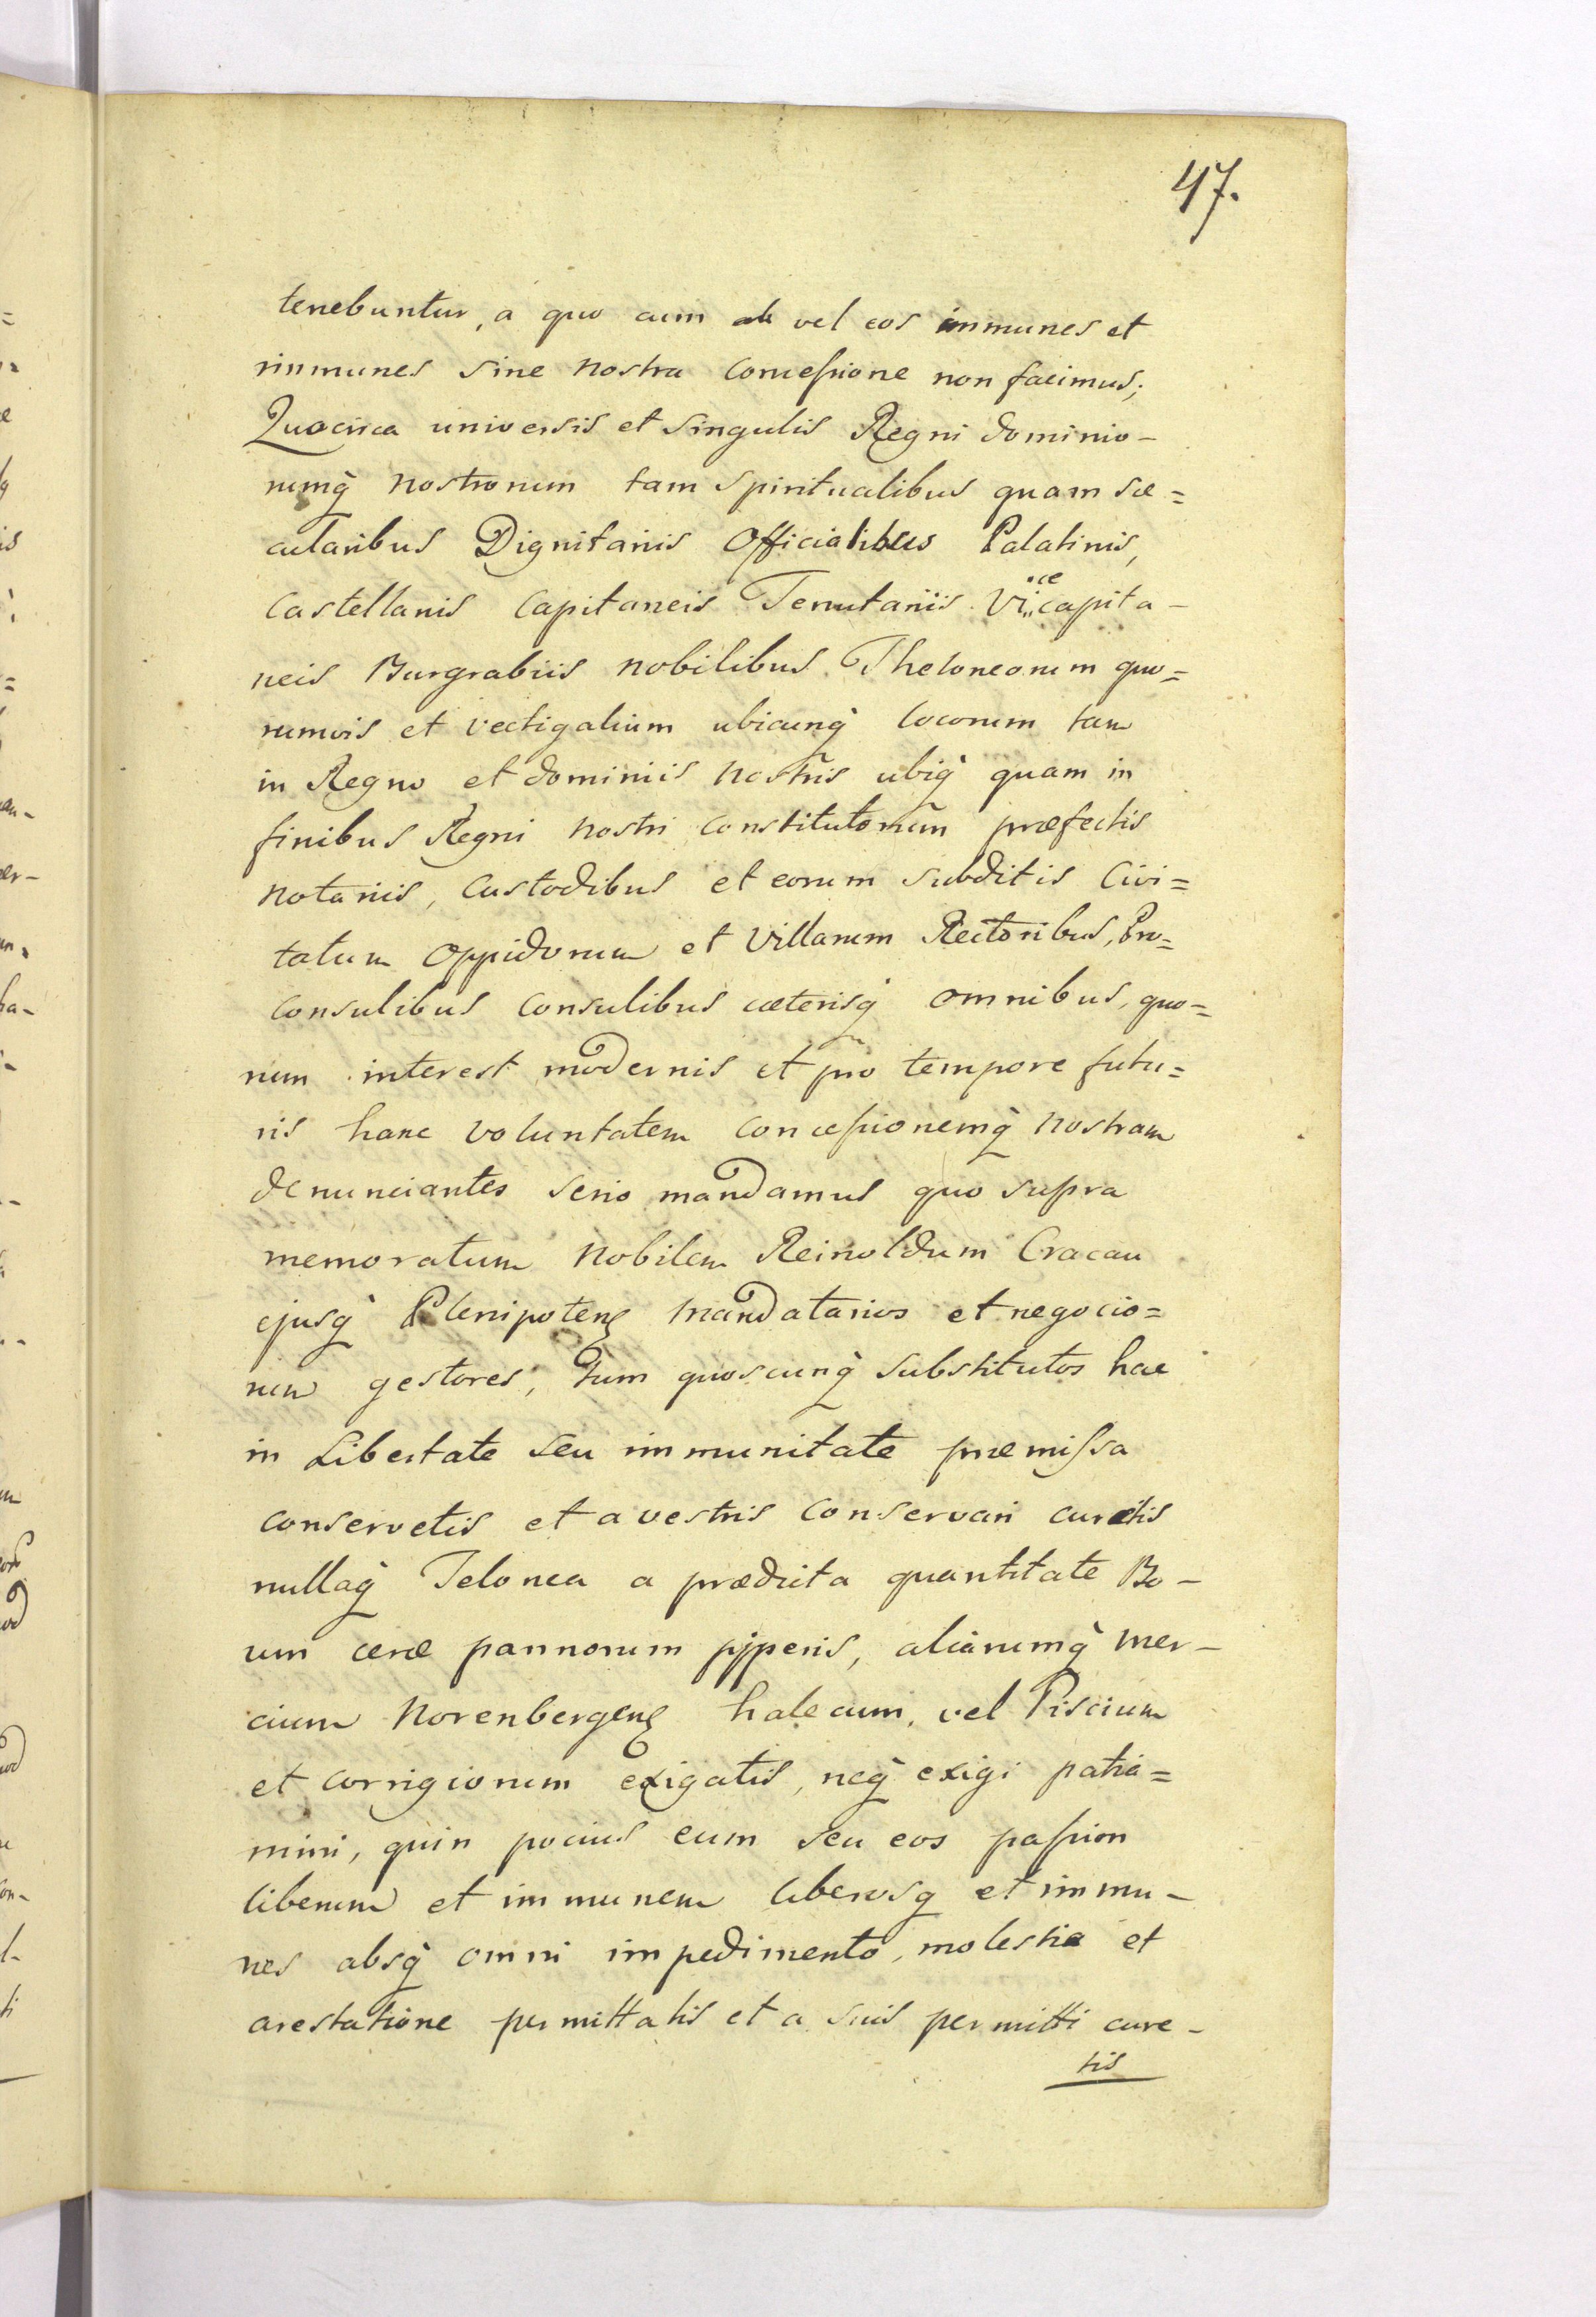 47.
tenebuntur, a quo cum vel eos immunes et
immunes sine nostra concessione non facimus;
Quocirca universis et singulis Regni dominio-
rumq̀ nostrorum tam spiritualibus quam sæ=
cularibus Dignitariis Officialibus Palatinis,
Castellanis Capitaneis Tenutariis Vicecapita-
neis Burgrabiis nobilibus Theloneorum quo=
rumvis et vectigalium ubicunq̀ locorum tam
in Regno et dominiis nostris ubiq̀ quam in
finibus Regni nostri constitutorum præfectis
notariis, custodibus et eorum subditis Civi=
tatum oppidorum et villarum Rectoribus, Pro=
consulibus consulibus cæterisq̀ omnibus, quo=
rum interest modernis et pro tempore futu=
ris hanc voluntatem concessionemq̀ nostram
denunciantes serio mandamus quo supra
memoratum nobilem Reinoldum Cracau
ejusq̀ Plenipotenʒ mandatarios et negocio=
rum gestores, tum quoscunq̀ substitutos hac
in Libertate seu immunitate præmissa
conservetis et a vestris conservari curetis
nullaq̀ Telonea a prædicta quantitate Bo-
um ceræ pannorum piperis, aliarumq̀ mer-
cium Norenbergenʒ halecum, vel Piscium
et corrigiorum exigatis, neq̀ exigi patia=
mini, quin pocius eum seu eos passim
liberum et immunem liberosq̀ et immu-
nes absq̀ omni impedimento, molestia et
arestatione permittatis et a suis permitti cure-
tis